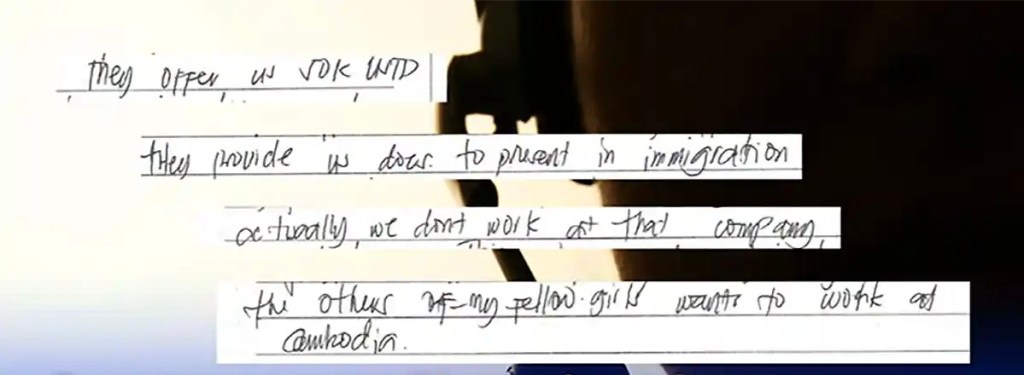 they offer us 50K NTD
they provide us docs. to present in immigration
actually, we dont work at that company,
the others of my fellow girls wants to work at
Cambodia.